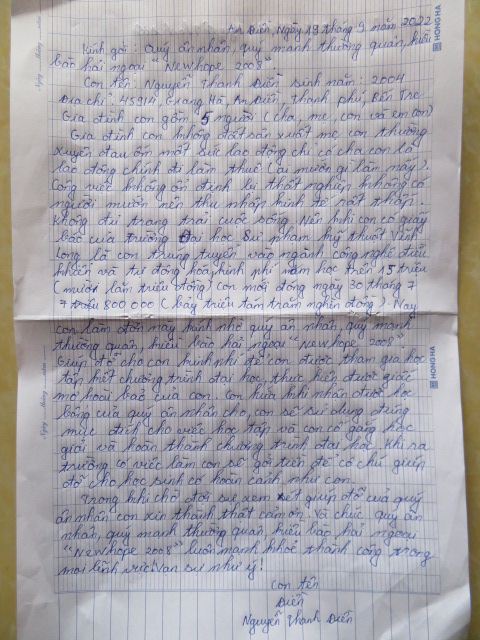 An Điền, Ngày 19 tháng 9 năm 2022
Kính gởi: Quý ân nhân, quý mạnh thường quân, kiều
bào hải ngoại "New hope 2008"
Con tên: Nguyễn Thanh Điền sinh năm: 2004
Địa chỉ: 459/4, Giang Hà, An Điền, Thạnh phú, Bến Tre
Gia đình con gồm 5 người (cha, mẹ, con và em con)
Gia đình con không đất sản xuất mẹ con thường
xuyên đau ốm mất sức lao động chỉ có cha con là
lao động chính đi làm thuê (ai mướn gì làm nấy).
Công việc không ổn định bị thất nghiệp không có
người mướn nên thu nhập kinh tế rất thấp.
Không đủ trang trải cuộc sống. Nên khi con có giấy
báo của trường Đại học Sư phạm kỹ thuật Vĩnh
Long là con trúng tuyển vào ngành công nghệ điều
khiển và tự động hóa, kinh phí năm học trên 15 triệu
(mười lăm triệu đồng) con mới đóng ngày 30 tháng 7
7 triệu 800.000 (bảy triệu tám trăm nghìn đồng). Nay
con làm đơn này kính nhờ quý ân nhân, quý mạnh
thường quân, kiều bào hải ngoại "New hope 2008"
Giúp đỡ cho con kinh phí để con được tham gia học
tập hết chương trình đại học, thực hiện được giấc
mơ hoài bão của con. Con hứa khi nhận được học
bổng của quý ân nhân cho, con sẽ sử dụng đúng
mục đích cho việc học tập và con cố gắng học
giỏi và hoàn thành chương trình đại học. Khi ra
trường có việc làm con sẽ gởi tiền để cô chú giúp
đỡ cho học sinh có hoàn cảnh như con.
Trong khi chờ đợi sự xem xét giúp đỡ của quý
ân nhân con xin thành thật cảm ơn. Và chúc quý ân
nhân, quý mạnh thường quân, kiều bào hải ngoại
"New hope 2008" luôn mạnh khỏe thành công trong
mọi lĩnh vực. Vạn sự như ý!
Con tên
Điền
Nguyễn Thanh Điền
HONG HA
HONG HA